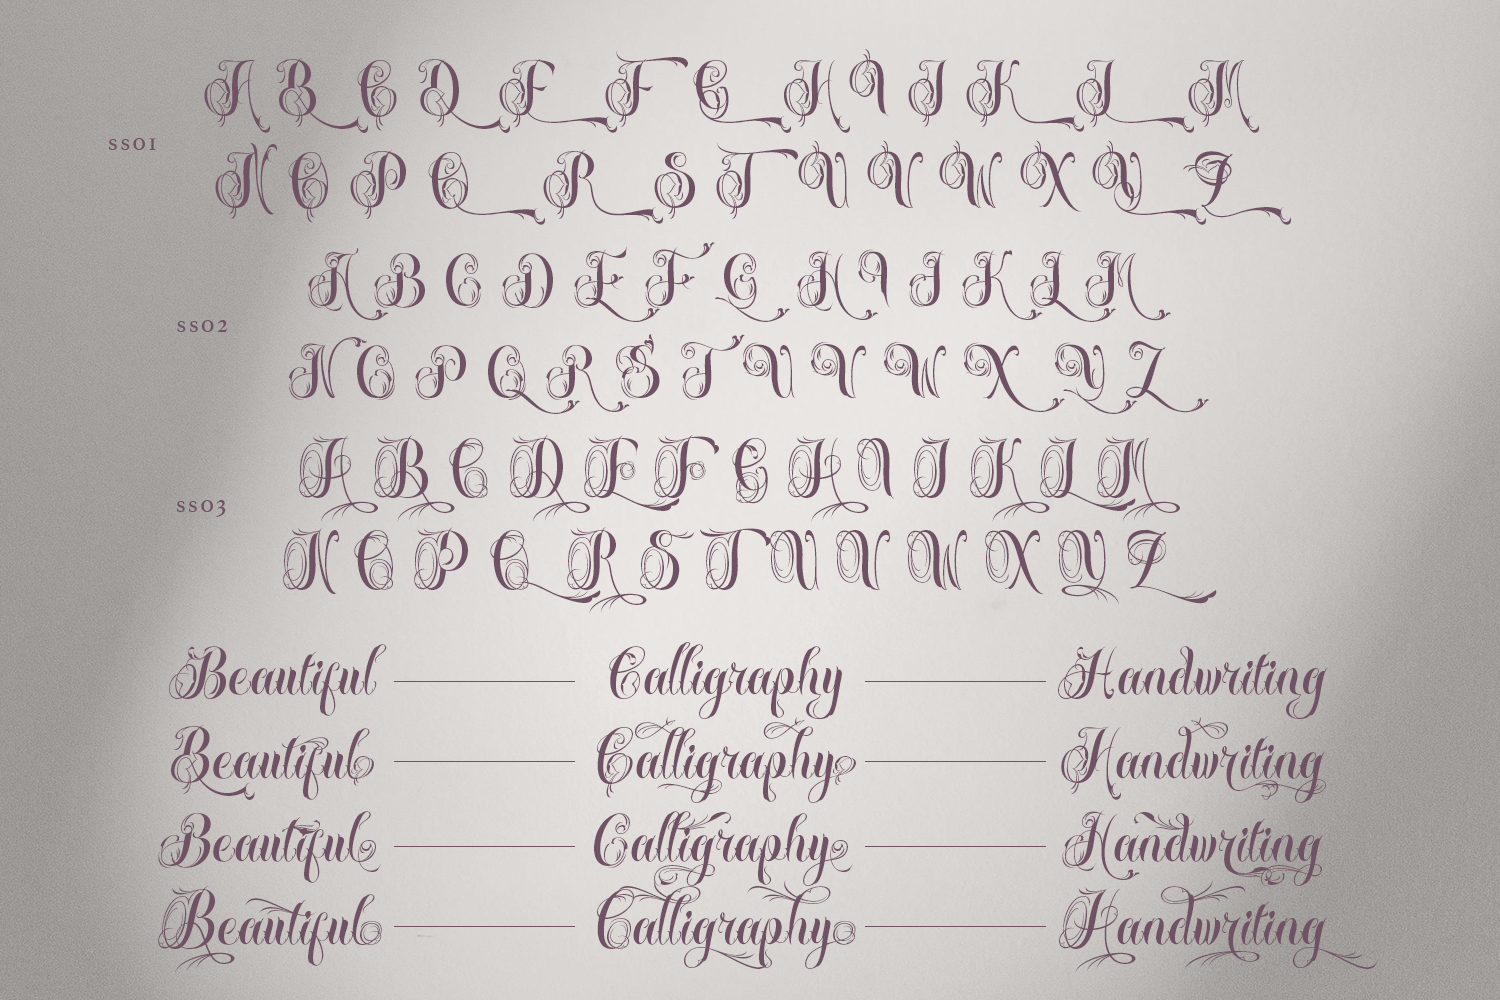 A B C D E F G H I J K L M
ss01
N O P Q R S T U V W X Y Z
A B C D E F G H I J K L M
ss02
N O P Q R S T U V W X Y Z
A B C D E F G H I J K L M
ss03
N O P Q R S T U V W X Y Z
Beautiful Calligraphy Handwriting
Beautiful Calligraphy Handwriting
Beautiful Calligraphy Handwriting
Beautiful Calligraphy Handwriting